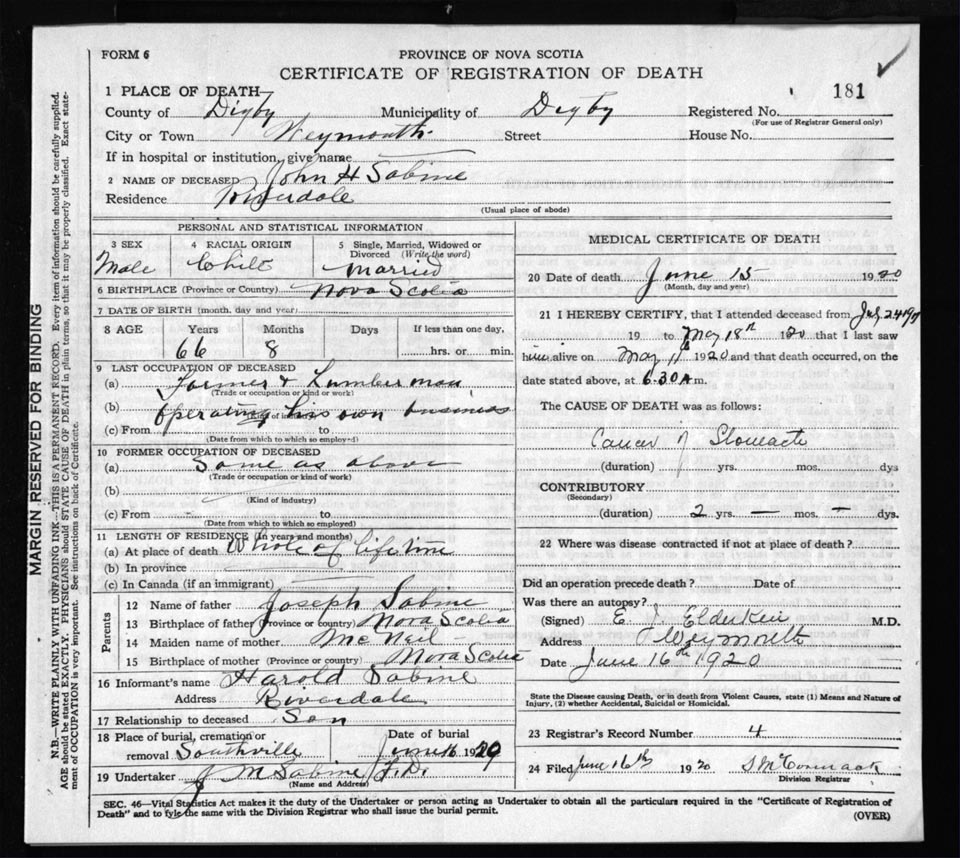 FORM 6
PROVINCE OF NOVA SCOTIA
CERTIFICATE OF REGISTRATION OF DEATH
181
1 PLACE OF DEATH—
County of Digby Municipality of Digby Registered No.
(For use of Registrar General only)
City or Town Weymouth Street House No.
If in hospital or institution, give name
2 NAME OF DECEASED John H Sabine
Residence Riverdale
(Usual place of abode)
PERSONAL AND STATISTICAL INFORMATION
3 SEX 4 RACIAL ORIGIN 5 Single, Married, Widowed or Divorced (Write the word)
Male Married
6 BIRTHPLACE (Province or Country) Nova Scotia
7 DATE OF BIRTH (month, day and year)
8 AGE Years Months Days If less than one day,
66 8 hrs. or min.
9 LAST OCCUPATION OF DECEASED
(a) Farmer & Lumberman
(Trade or occupation or kind of work)
(b) operating his own business
(Kind of industry)
(c) From to
(Date from which to which so employed)
10 FORMER OCCUPATION OF DECEASED
(a) Same as above
(Trade or occupation or kind of work)
(b)
(Kind of industry)
(c) From to
(Date from which to which so employed)
11 LENGTH OF RESIDENCE (In years and months)
(a) At place of death Whole of lifetime
(b) In province
(c) In Canada (if an immigrant)
Parents
12 Name of father Joseph Sabine
13 Birthplace of father (Province or country) Nova Scotia
14 Maiden name of mother McNeil
15 Birthplace of mother (Province or country) Nova Scotia
16 Informant's name Harold Sabine
Address Riverdale
17 Relationship to deceased Son
18 Place of burial, cremation or Date of burial
removal Southville June 16 1920
19 Undertaker J M Sabine F.D.
(Name and Address)
MEDICAL CERTIFICATE OF DEATH
20 Date of death June 15 1920
(Month, day and year)
21 I HEREBY CERTIFY, that I attended deceased from July 24
19 to May 18th 1920 that I last saw
him alive on May 11th 1920 and that death occurred, on the
date stated above, at 6.30 A m.
The CAUSE OF DEATH was as follows:
Cancer of Stomach
(duration) yrs. mos. dys
CONTRIBUTORY
(Secondary)
(duration) 2 yrs. — mos. — dys.
22 Where was disease contracted if not at place of death?
Did an operation precede death? Date of
Was there an autopsy?
(Signed) E J Elderkin M.D.
Address Weymouth
Date June 16th 1920
State the Disease causing Death, or in death from Violent Causes, state (1) Means and Nature of
Injury, (2) whether Accidental, Suicidal or Homicidal.
23 Registrar's Record Number 4
24 Filed June 16th 1920 S McCormack
Division Registrar
SEC. 46—Vital Statistics Act makes it the duty of the Undertaker or person acting as Undertaker to obtain all the particulars required in the "Certificate of Registration of
Death" and to fyle the same with the Division Registrar who shall issue the burial permit.
(OVER)
MARGIN RESERVED FOR BINDING
N.B.—WRITE PLAINLY WITH UNFADING INK—THIS IS A PERMANENT RECORD. Every item of information should be carefully supplied.
AGE should be stated EXACTLY. PHYSICIANS should STATE CAUSE OF DEATH in plain terms, so that it may be properly classified. Exact state-
ment of OCCUPATION is very important. See instructions on back of Certificate.